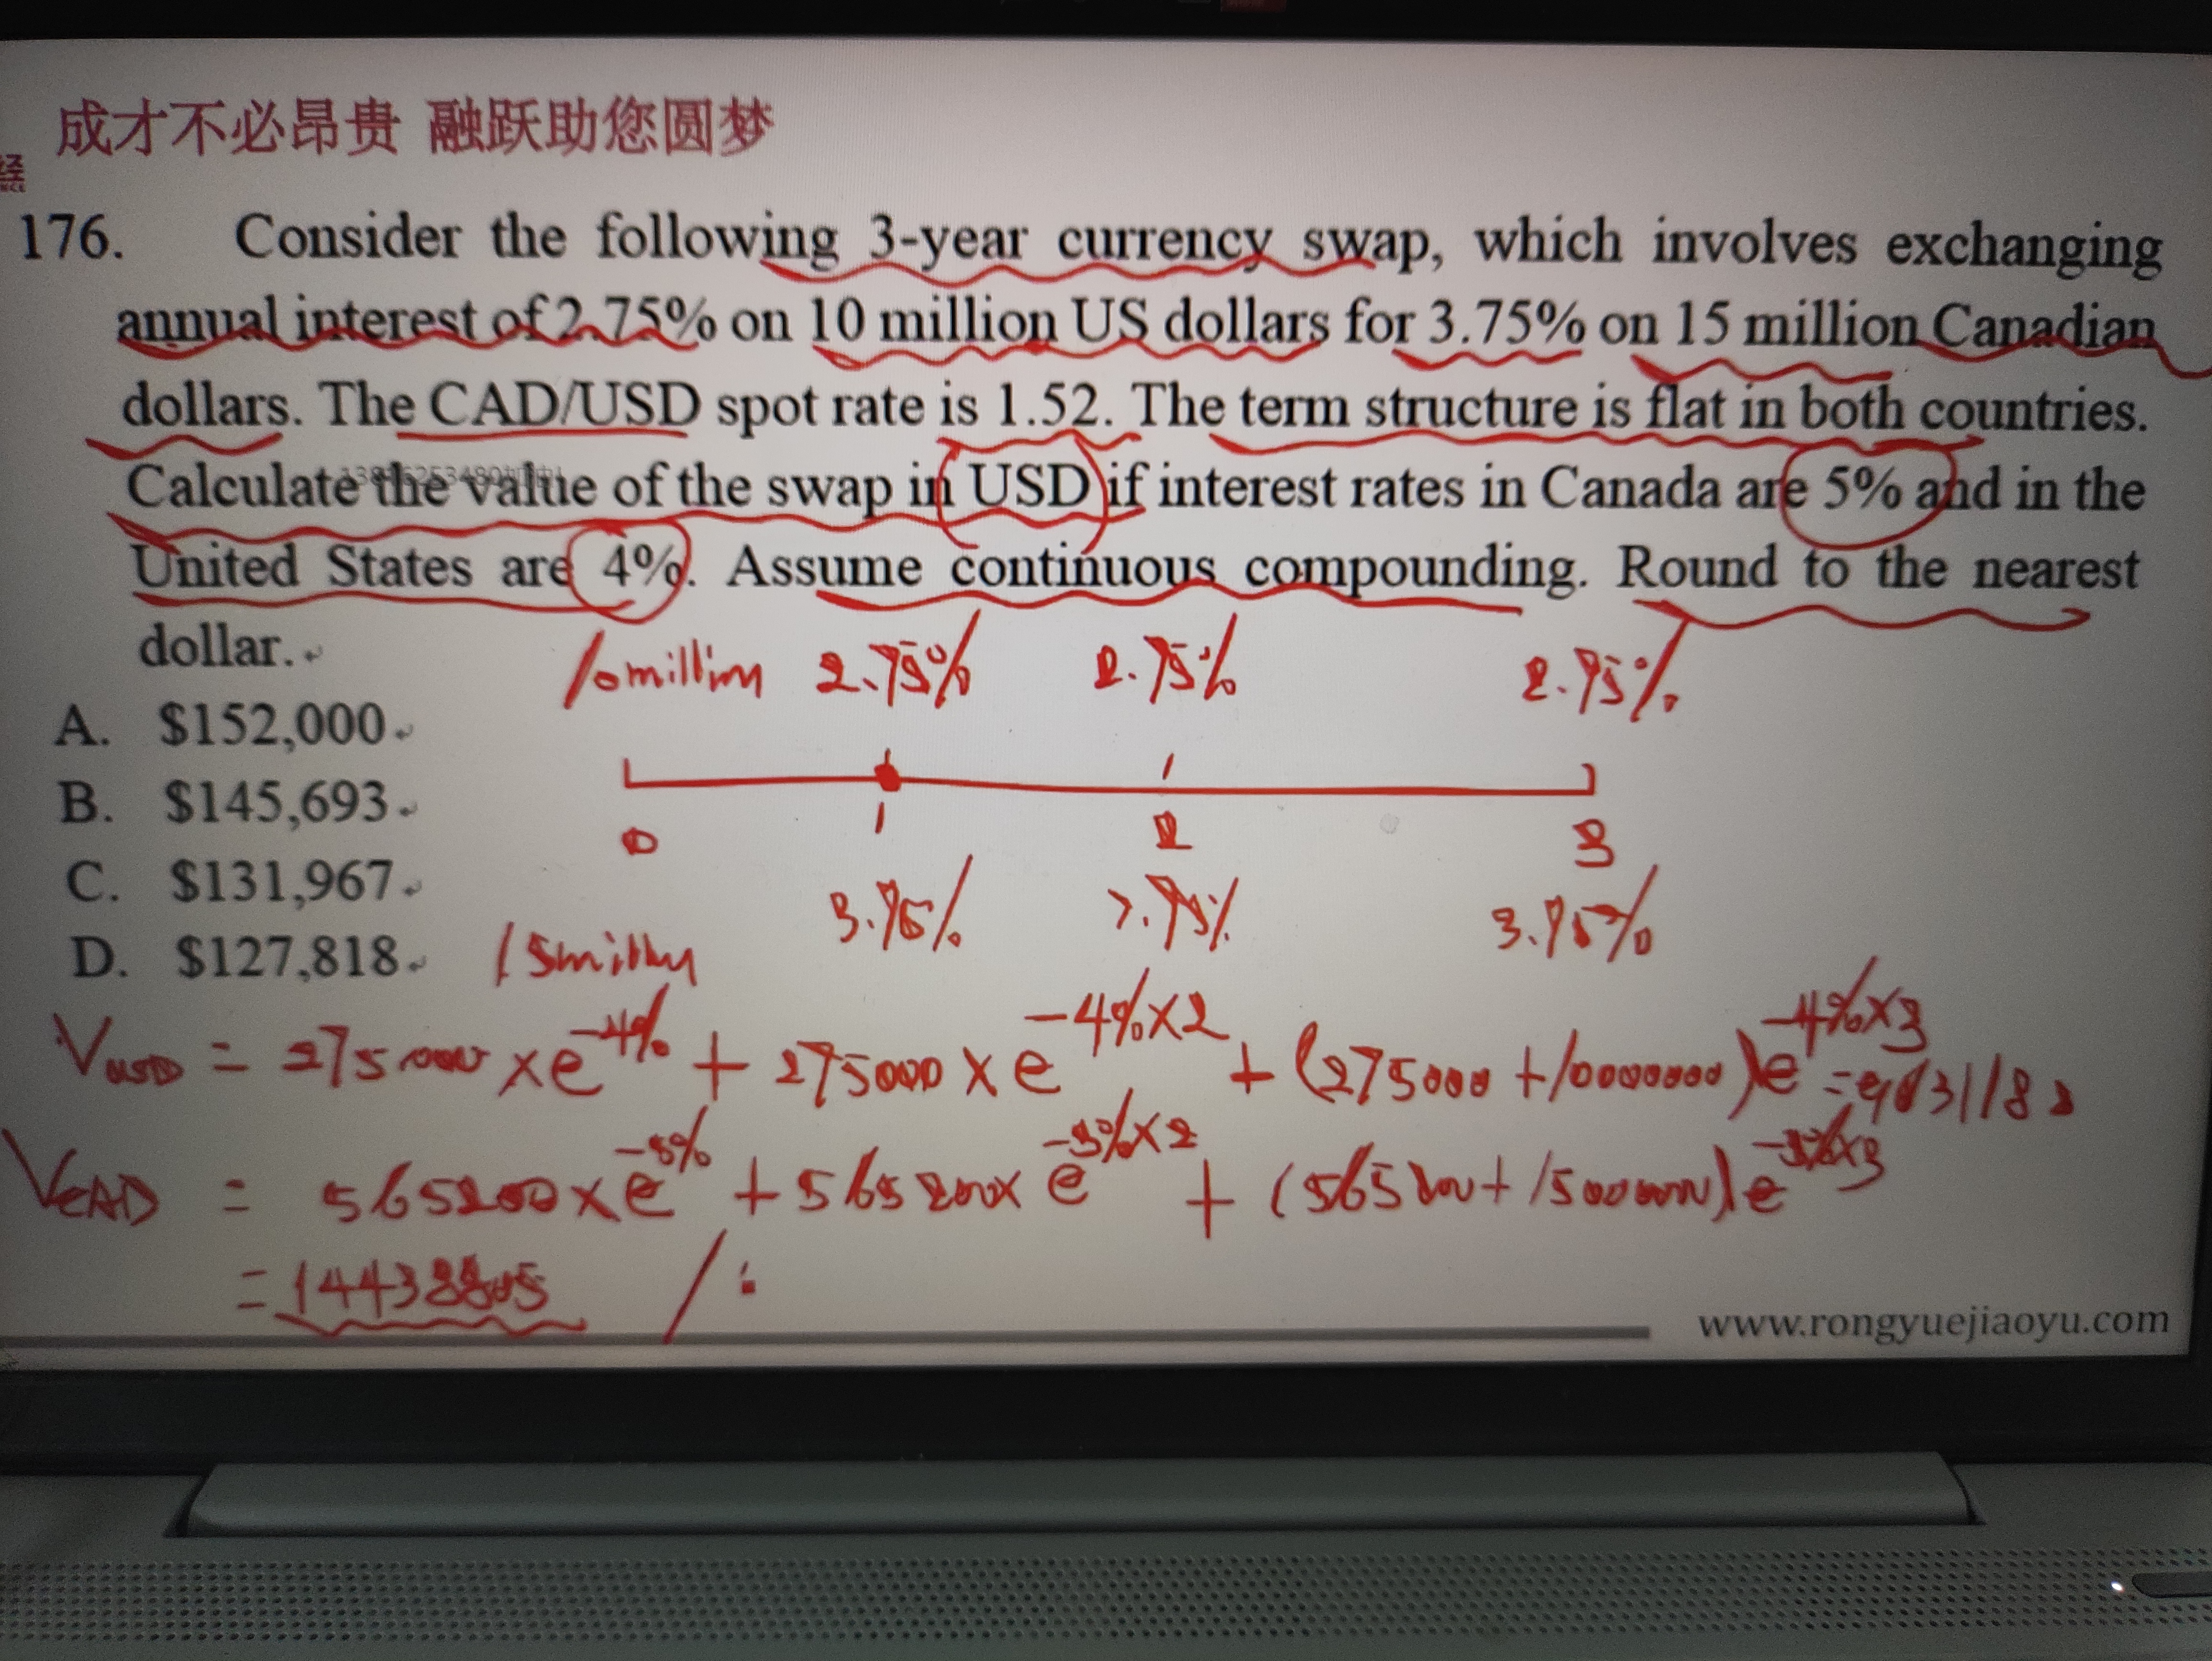 成才不必昂贵 融跃助您圆梦
经
176. Consider the following 3-year currency swap, which involves exchanging
annual interest of 2.75% on 10 million US dollars for 3.75% on 15 million Canadian
dollars. The CAD/USD spot rate is 1.52. The term structure is flat in both countries.
Calculate the value of the swap in USD if interest rates in Canada are 5% and in the
United States are 4%. Assume continuous compounding. Round to the nearest
dollar.
10 million 2.75% 2.75% 2.75%
A. $152,000
B. $145,693
C. $131,967
D. $127,818
0 1 2 3
15 million 3.75% 3.75% 3.75%
VUSD = 275000 × e^-4% + 275000 × e^-4%×2 + (275000 + 10000000)e^-4%×3
VCAD = 565200 × e^-5% + 565200 × e
=
www.rongyuejiaoyu.com